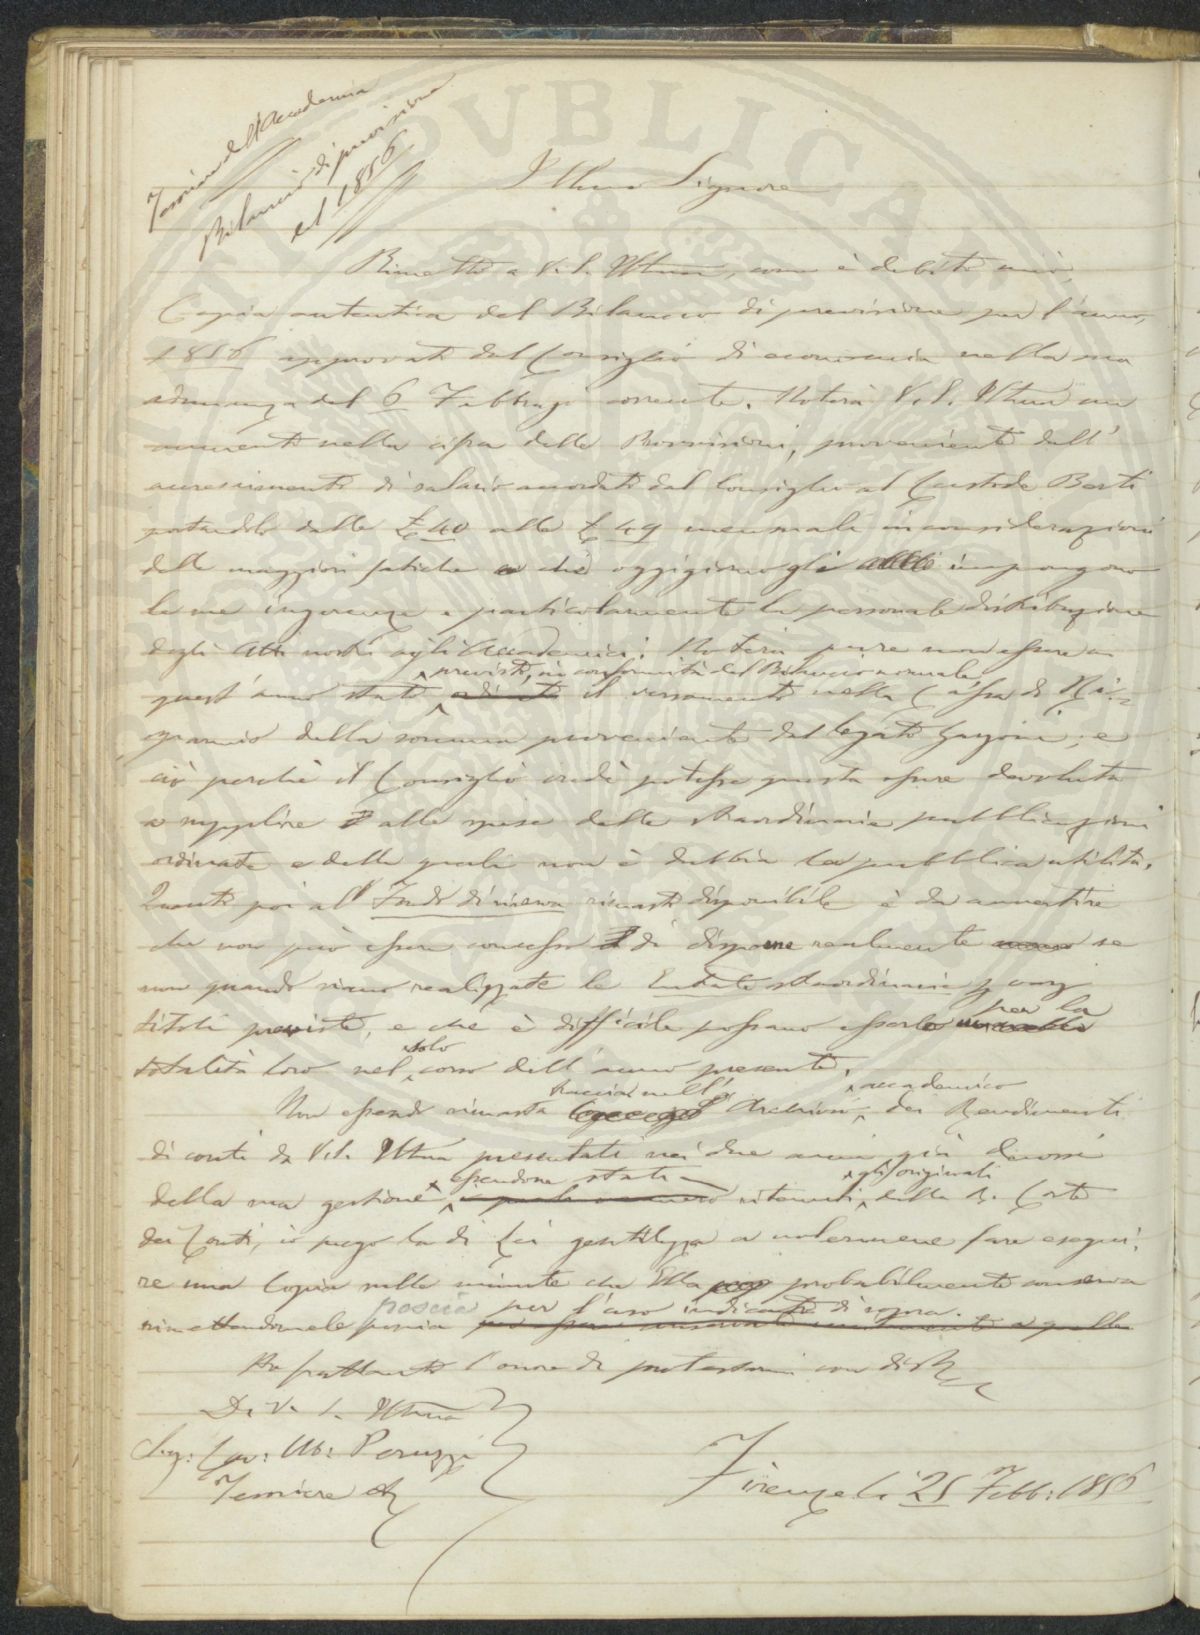 Tesoriere dell'Accademia
Bilancio di previsione
del 1856
Illmo Signore
Rimetto a V.S. Illma, come è debito mio,
Copia autentica del Bilancio di previsione per l'anno
1856 approvato dal Consiglio di economia nella sua
adunanza del 6 Febbrajo corrente. Noterà V.S. Illma un
aumento nella cifra delle Provvisioni, proveniente dall'
accrescimento di salario accordato dal Consiglio al Custode Berti
portandolo dalle £ 40 alle £ 49 mensuali in considerazione
delle maggiori fatiche che oggigiorno gli impongono
le sue ingerenze e particolarmente la personale distribuzione
degli Atti nostri agli Accademici. Noterà pure non essere in
previsto, in conformità del Bilancio normale
quest'anno stato ordinato il versamento nella Cassa di Ri-
sparmio della somma proveniente dal legato Gazzeri; e
ciò perchè il Consiglio credè potesse questa essere devoluta
a supplire alle spese delle straordinarie pubblicazioni
ordinate e delle quali non è dubbia la pubblica utilità.
Quanto poi al Fondo di riserva rimasto disponibile è da avvertire
che non può essere concesso di disporne realmente se
non quando siano realizzate le Entrate straordinarie p. varj
per la
titoli previste, e che è difficile possano esserlo
solo
totalità loro nel corso dell'anno presente.
traccia nell' accademico
Non essendo rimasta Archivio dei Rendimenti
di conti da V.S. Illma presentati nei due anni già decorsi
essendone stati gli originali
della sua gestione, ritenuti dalla R. Corte
dei Conti, io prego la di Lei gentilezza a volermene fare esegui-
re una Copia sulle minute che Ella probabilmente conserva
poscia per l'uso indicato di sopra.
rimettendomele poscia
Ho frattanto l'onore di protestarmi con dist.
Di V. S. Illma
Sig: Cav: Ub: Peruzzi
Tesoriere
Firenze li 25 Febb: 1856